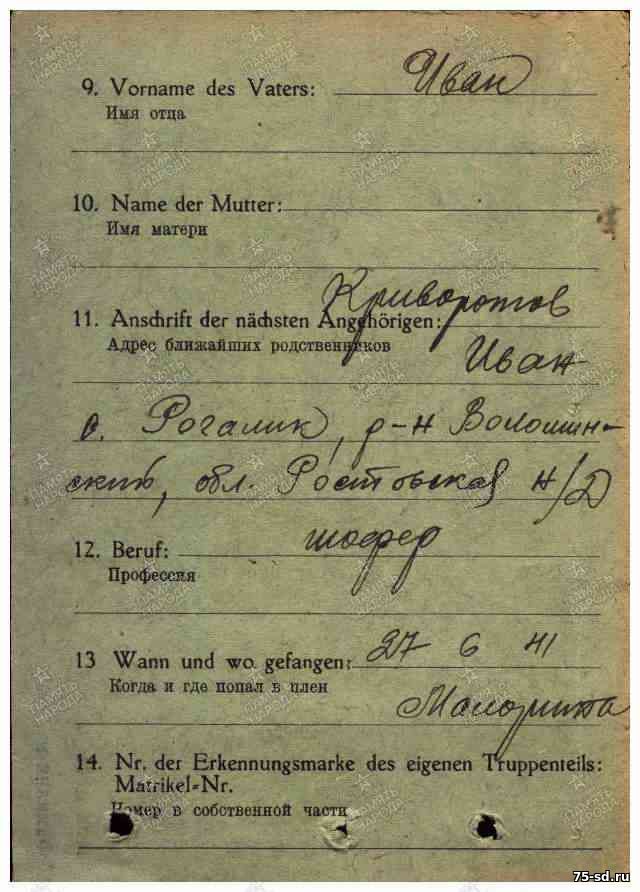 9. Vorname des Vaters: Иван
Имя отца
10. Name der Mutter:
Имя матери
Криворотов
11. Anschrift der nächsten Angehörigen:
Адрес ближайших родственников Иван
с. Рогалик, р-н Волошин-
ский, обл. Ростовская Н/Д
12. Beruf: шофер
Профессия
13 Wann und wo gefangen: 27 6 41
Когда и где попал в плен
Малорита
14. Nr. der Erkennungsmarke des eigenen Truppenteils:
Matrikel-Nr.
Номер в собственной части
ПАМЯТЬ
НАРОДА
75-sd.ru